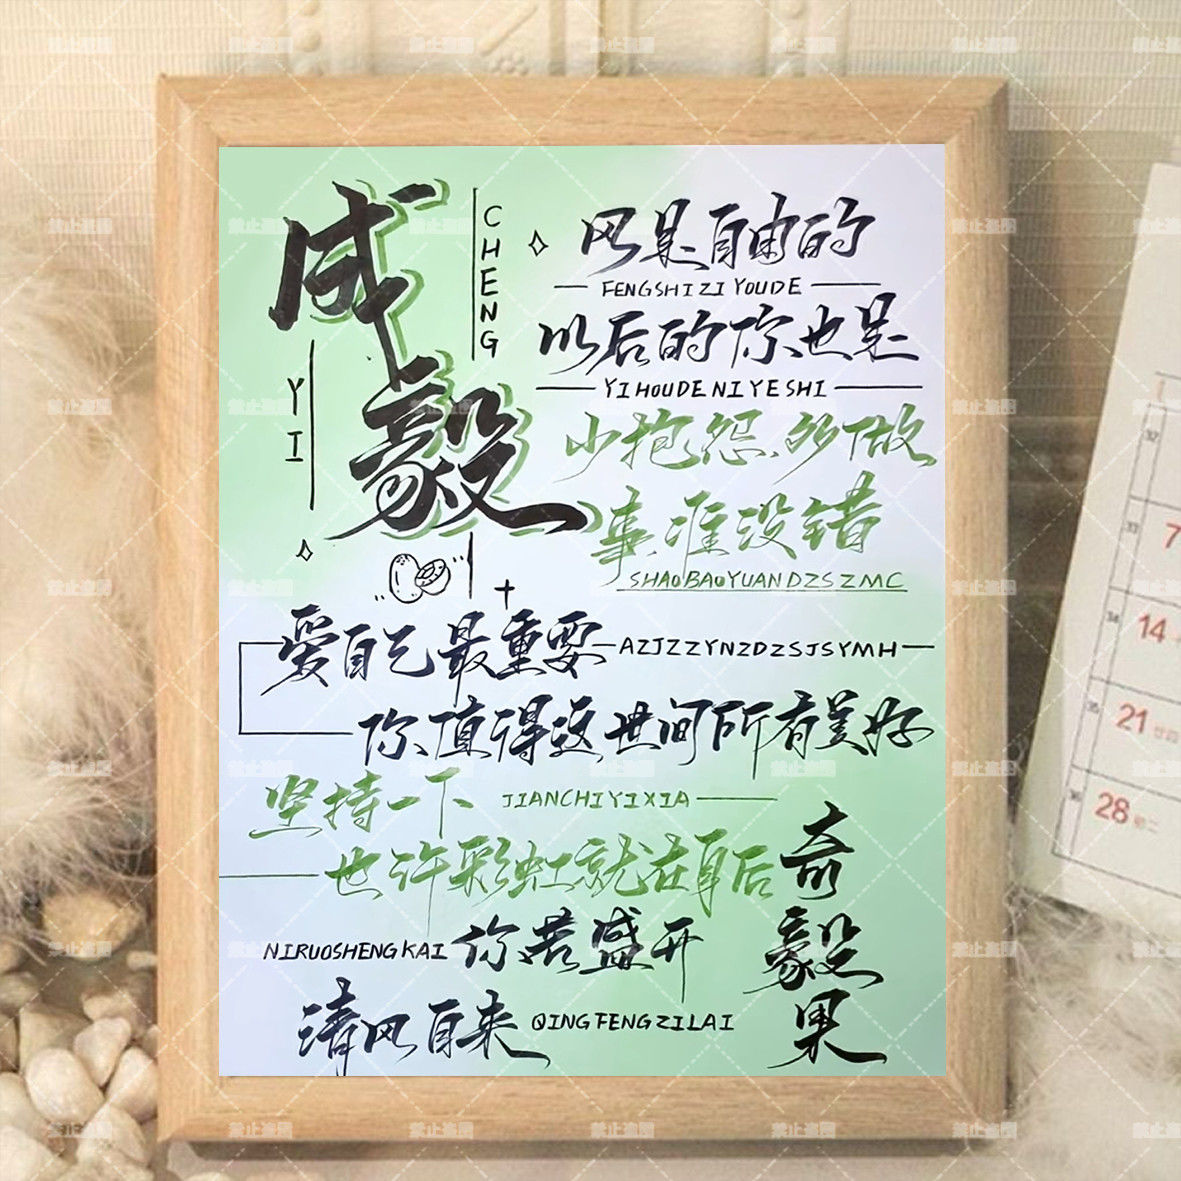 成毅
CHENG
YI
风是自由的
FENGSHIZIYOUDE
以后的你也是
YIHOUDENIYESHI
少抱怨多做
事准没错
SHAOBAOYUANDZSZMC
爱自己最重要
AZJZZYNZDZSJSYMH
你值得这世间所有美好
坚持一下
JIANCHIYIXIA
也许彩虹就在身后
NIRUOSHENGKAI
你若盛开
清风自来
QINGFENGZILAI
奇毅果
7
14
21
28
禁止盗图